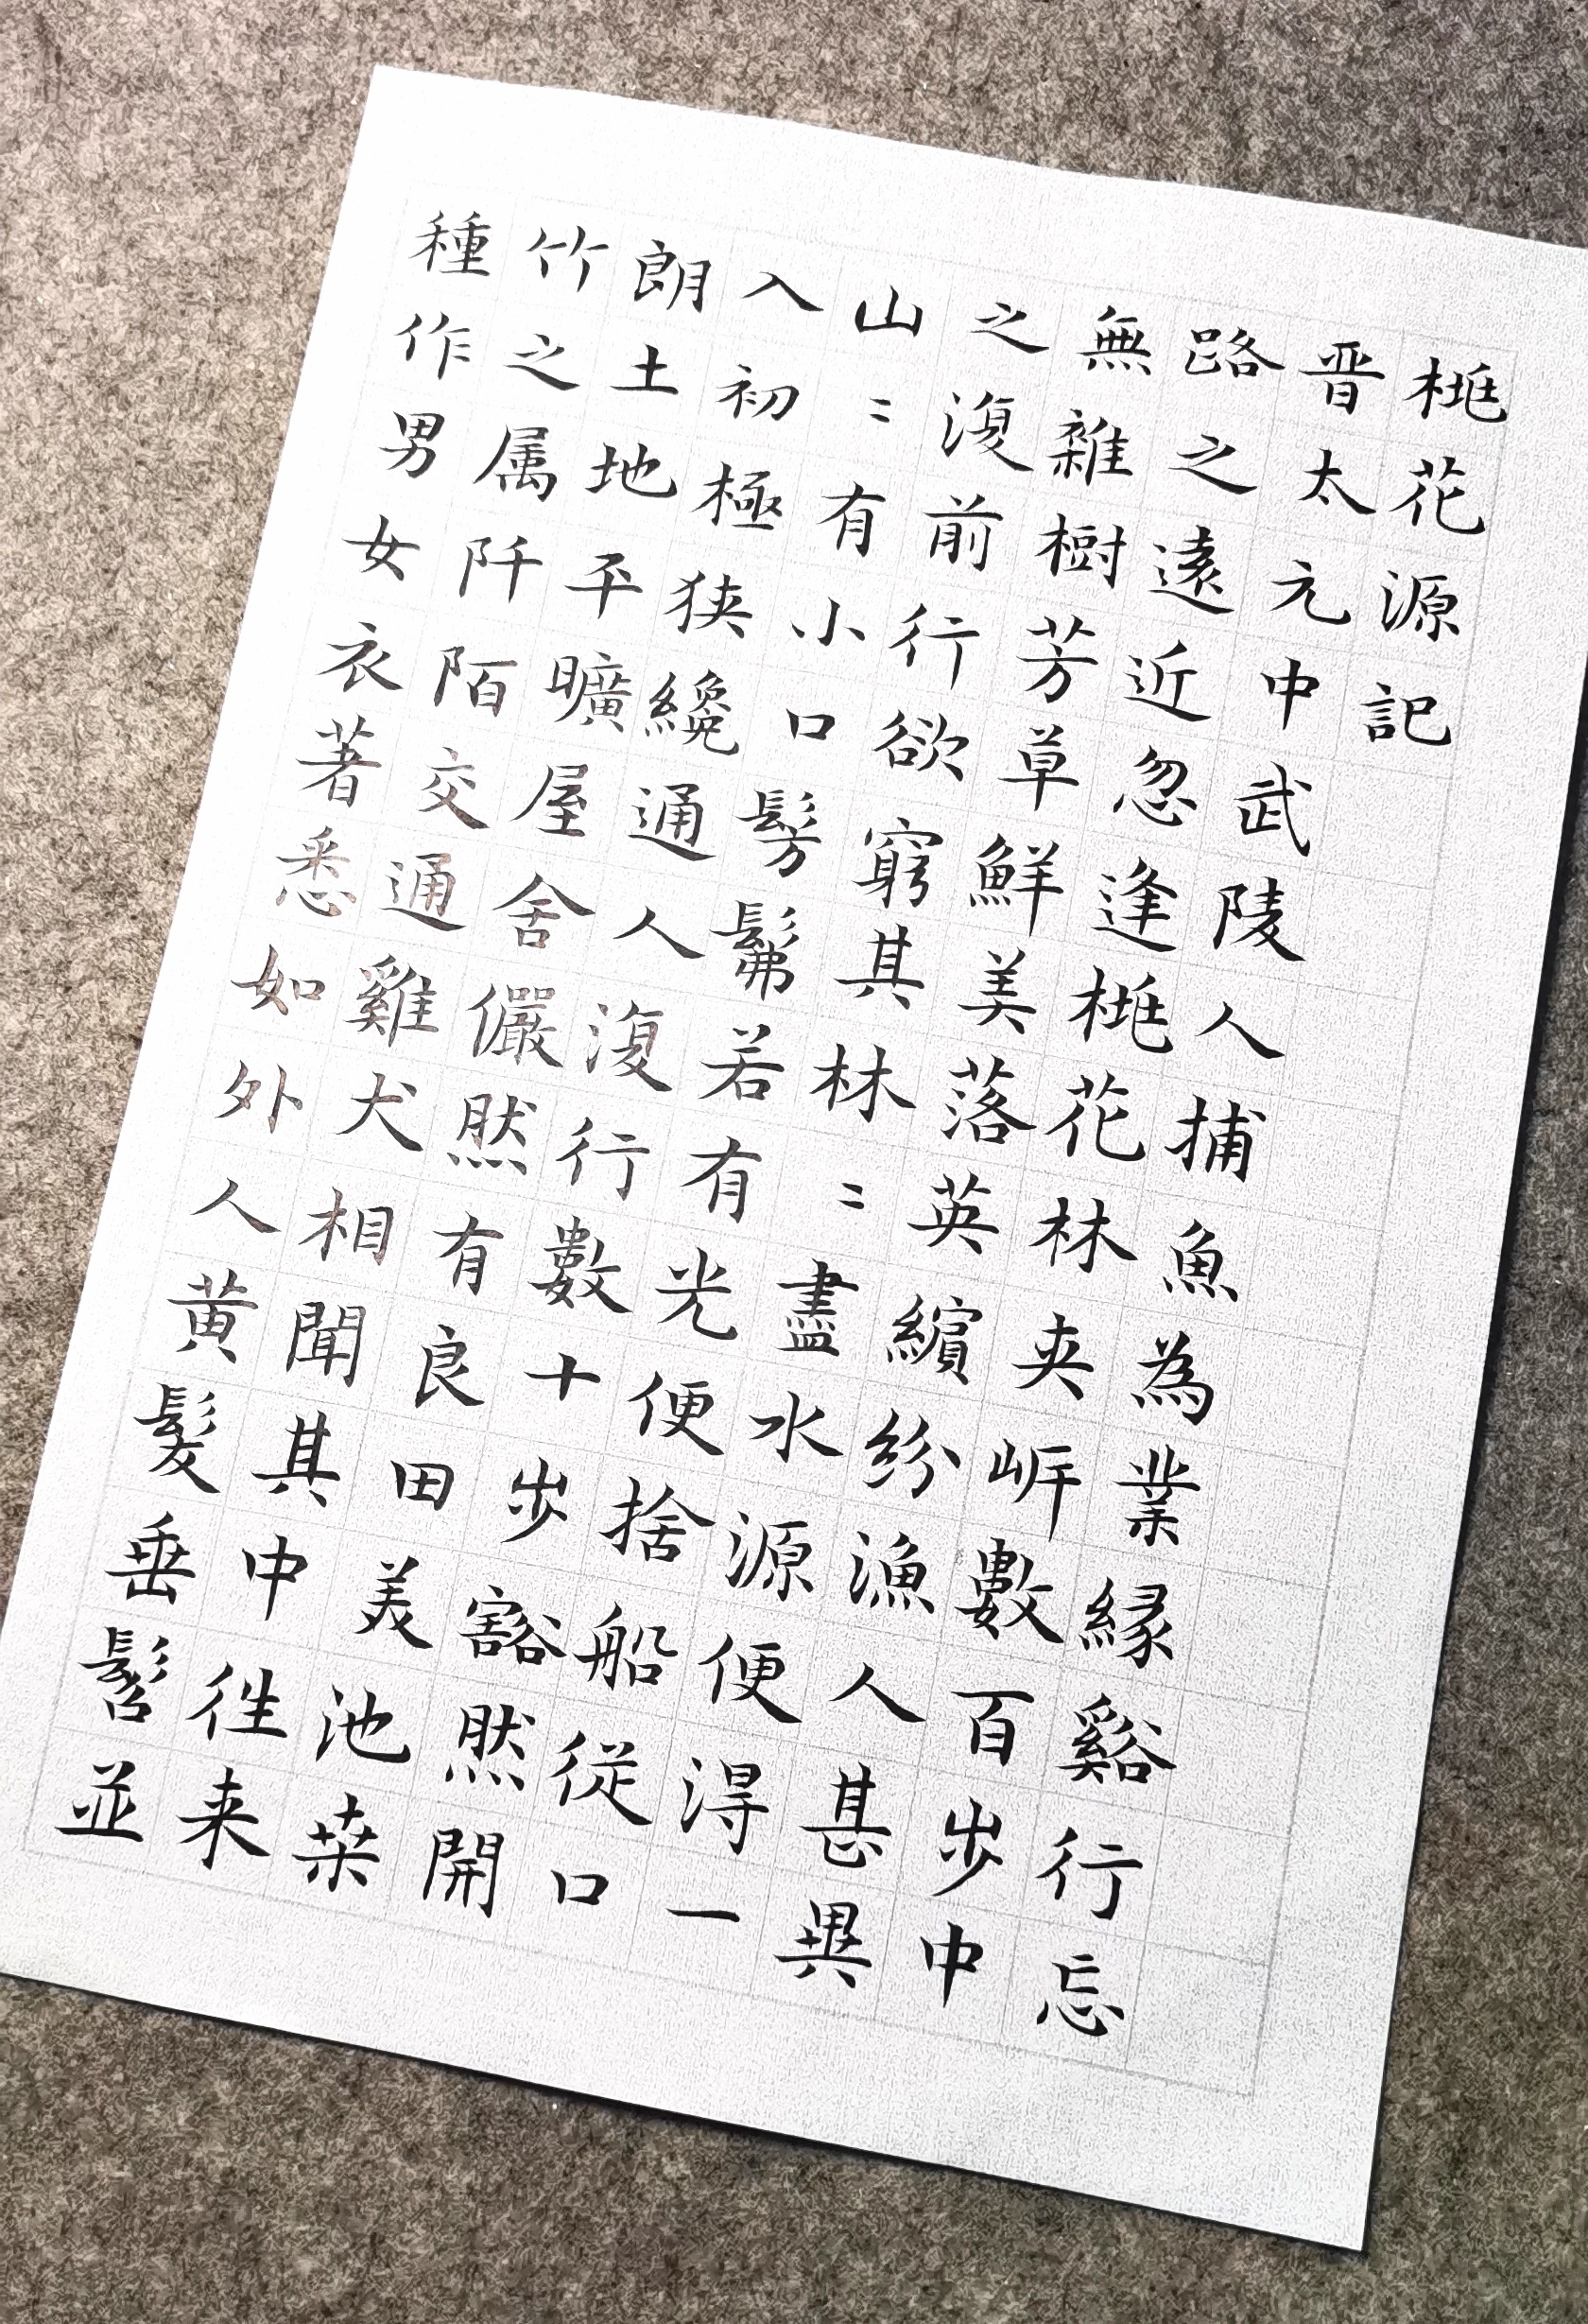 桃花源記
晋太元中武陵人捕魚為業縁谿行忘
路之遠近忽逢桃花林夹岍數百步中
無雜樹芳草鮮美落英繽紛漁人甚異
之復前行欲窮其林〻盡水源便得一
山〻有小口髣髴若有光便捨船従口
入初極狭纔通人復行數十步豁然開
朗土地平曠屋舍儼然有良田美池桒
竹之属阡陌交通雞犬相聞其中往来
種作男女衣著悉如外人黄髮垂髫並